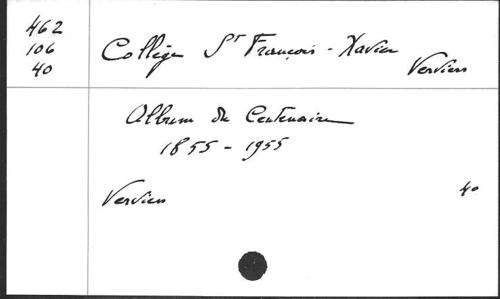 462
106
40
Collège St François-Xavier
Verviers
Album du Centenaire
1855-1955
Verviers
4°